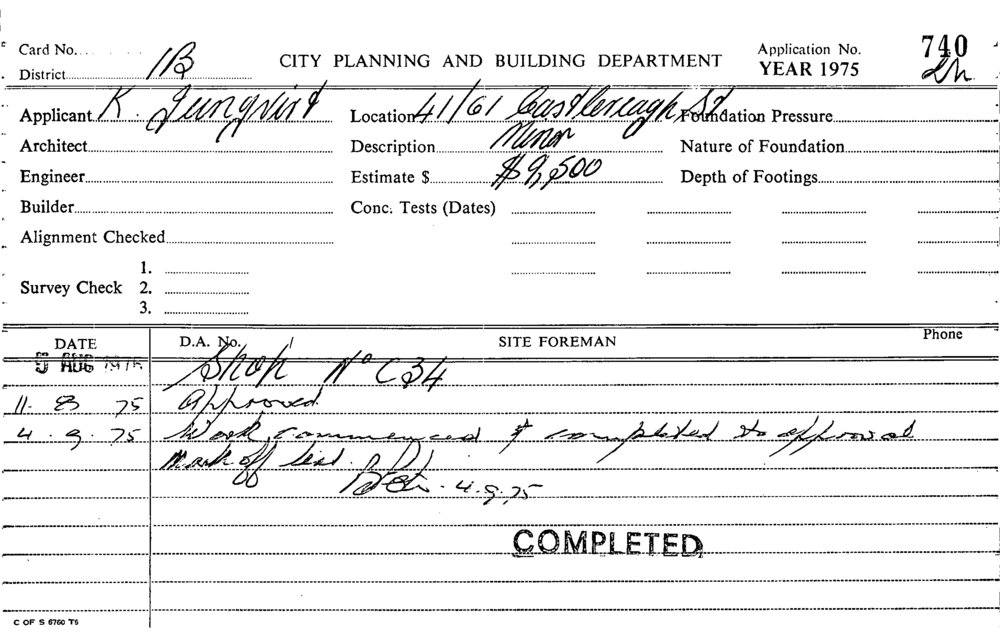 Card No.
District 1B
CITY PLANNING AND BUILDING DEPARTMENT
Application No. 740
YEAR 1975
Applicant K. Ljungqvist
Location 41/61 Castlereagh St
Foundation Pressure
Architect
Description Minor
Nature of Foundation
Engineer
Estimate $ $9,500
Depth of Footings
Builder
Conc. Tests (Dates)
Alignment Checked
Survey Check
1.
2.
3.
DATE
D.A. No.
SITE FOREMAN
Phone
AUG 1975 Shop No C34
11. 8 75 Approved.
4. 9. 75 Work commenced & completed to approval
Mark off
4.9.75
COMPLETED
C OF S 6760 T5